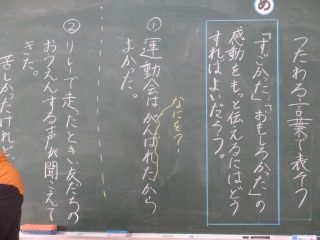 つたわる言葉で表そう
め
「すごかった」「おもしろかった」の
感動をもっと伝えるにはどう
すればよいだろう。
なにを?
① 運動会はがんばれたから
よかった。
② リレーで走ったとき、友だちの
おうえんする声が聞こえて
きた。
苦しかったけれど、